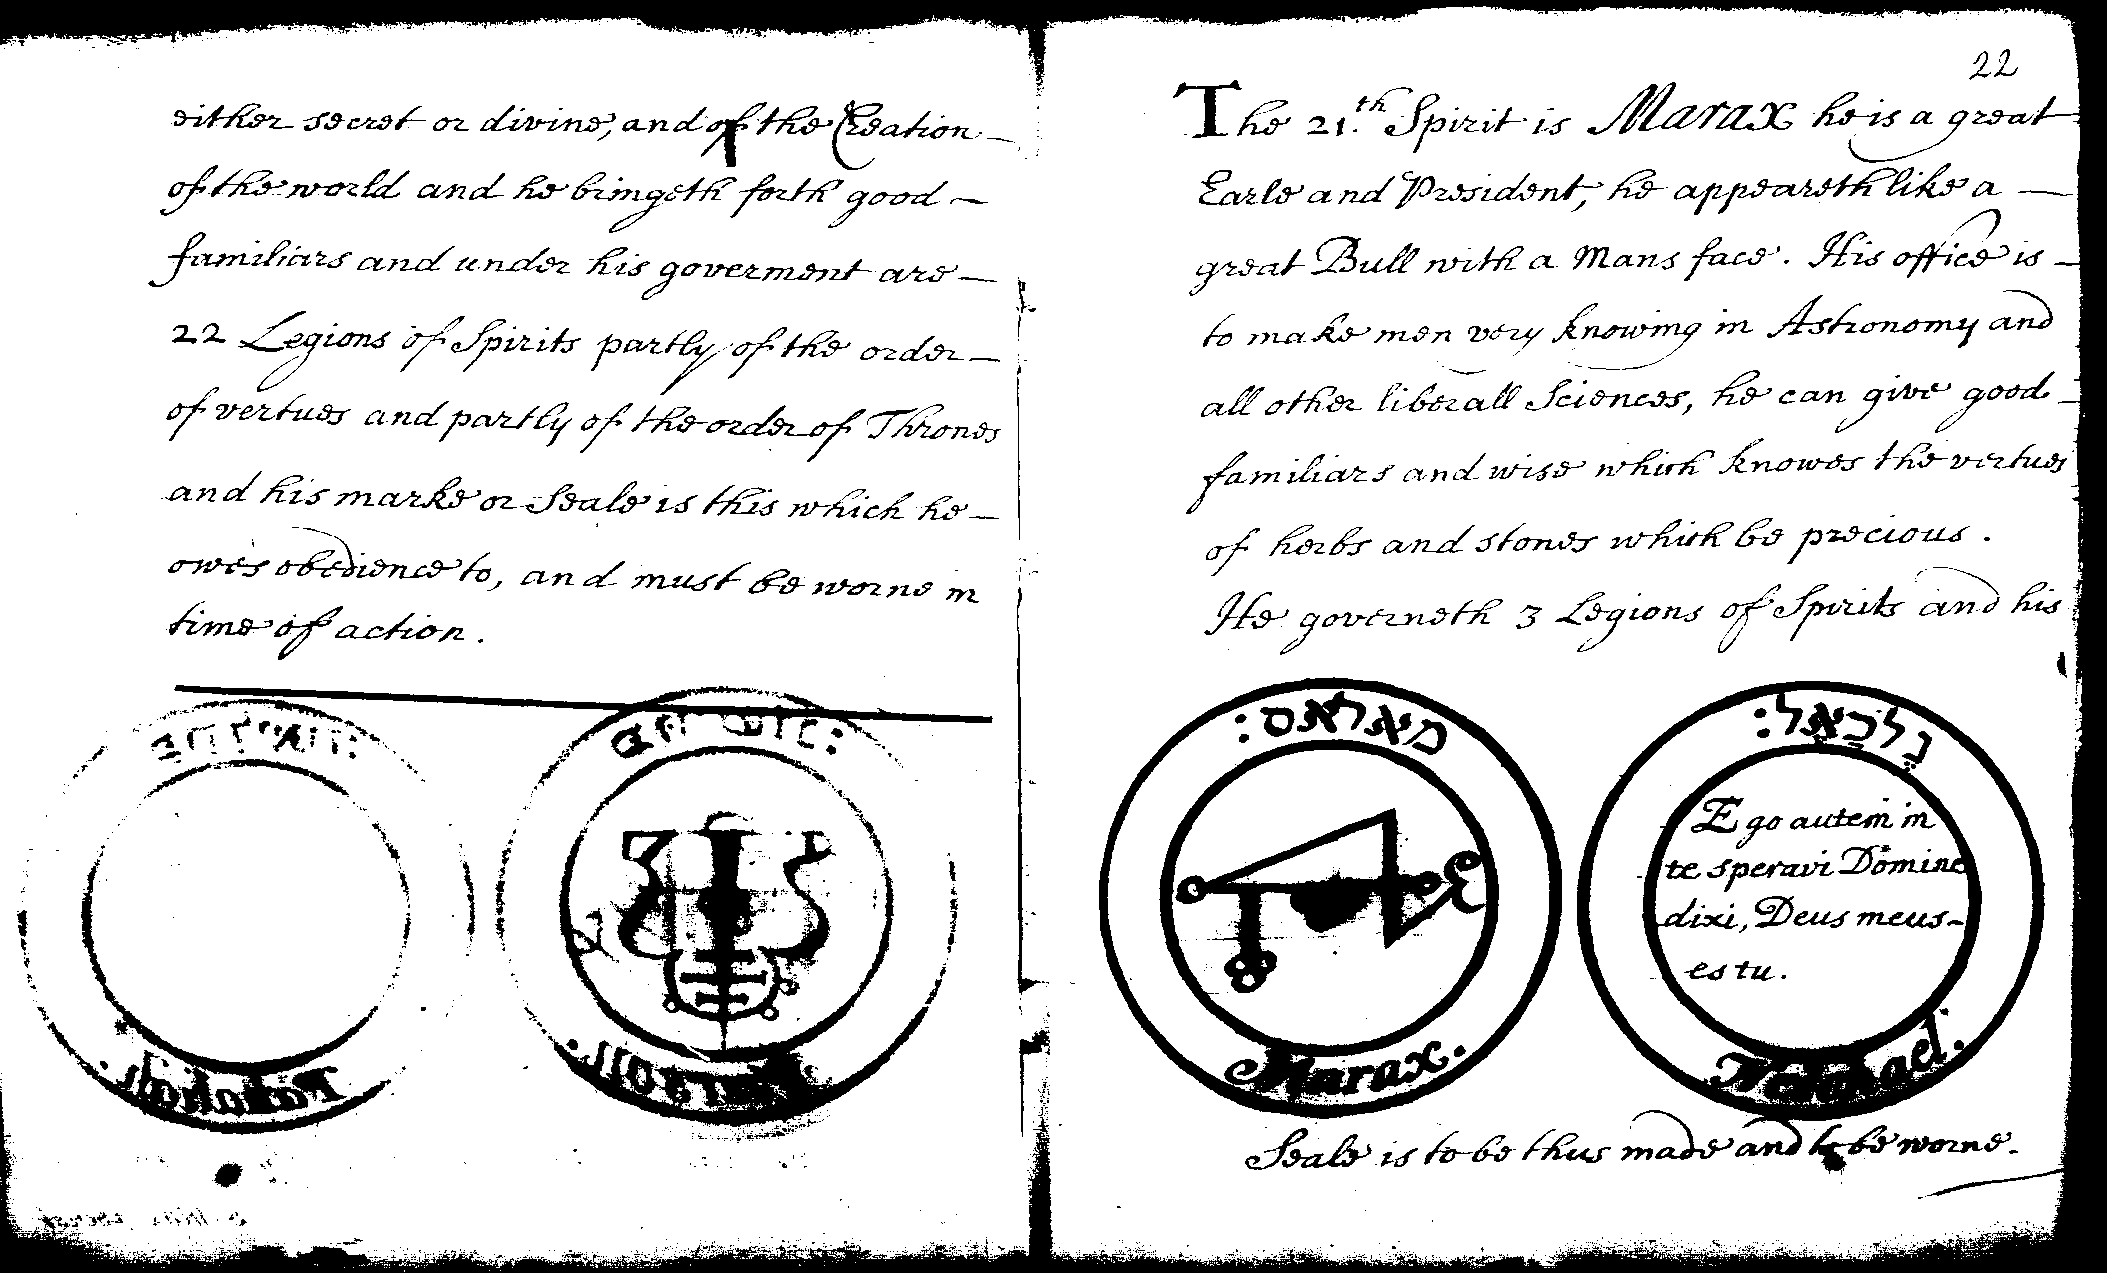 either secret or divine, and of the Creation
of the world and he bringeth forth good
familiars and under his goverment are
22 Legions of Spirits partly of the order
of vertues and partly of the order of Thrones
and his marke or Seale is this which he
owes obedience to, and must be worne in
time of action.
22
The 21.th Spirit is Marax he is a great
Earle and President, he appeareth like a
great Bull with a Mans face. His office is
to make men very knowing in Astronomy and
all other liberall Sciences, he can give good
familiars and wise which knowes the vertues
of herbs and stones which be precious.
He governeth 3 Legions of Spirits and his
מאראס:
Marax.
נלכאל:
Ego autem in
te speravi Domine
dixi, Deus meus
es tu.
Nelchael.
Seale is to be thus made and to be worne.